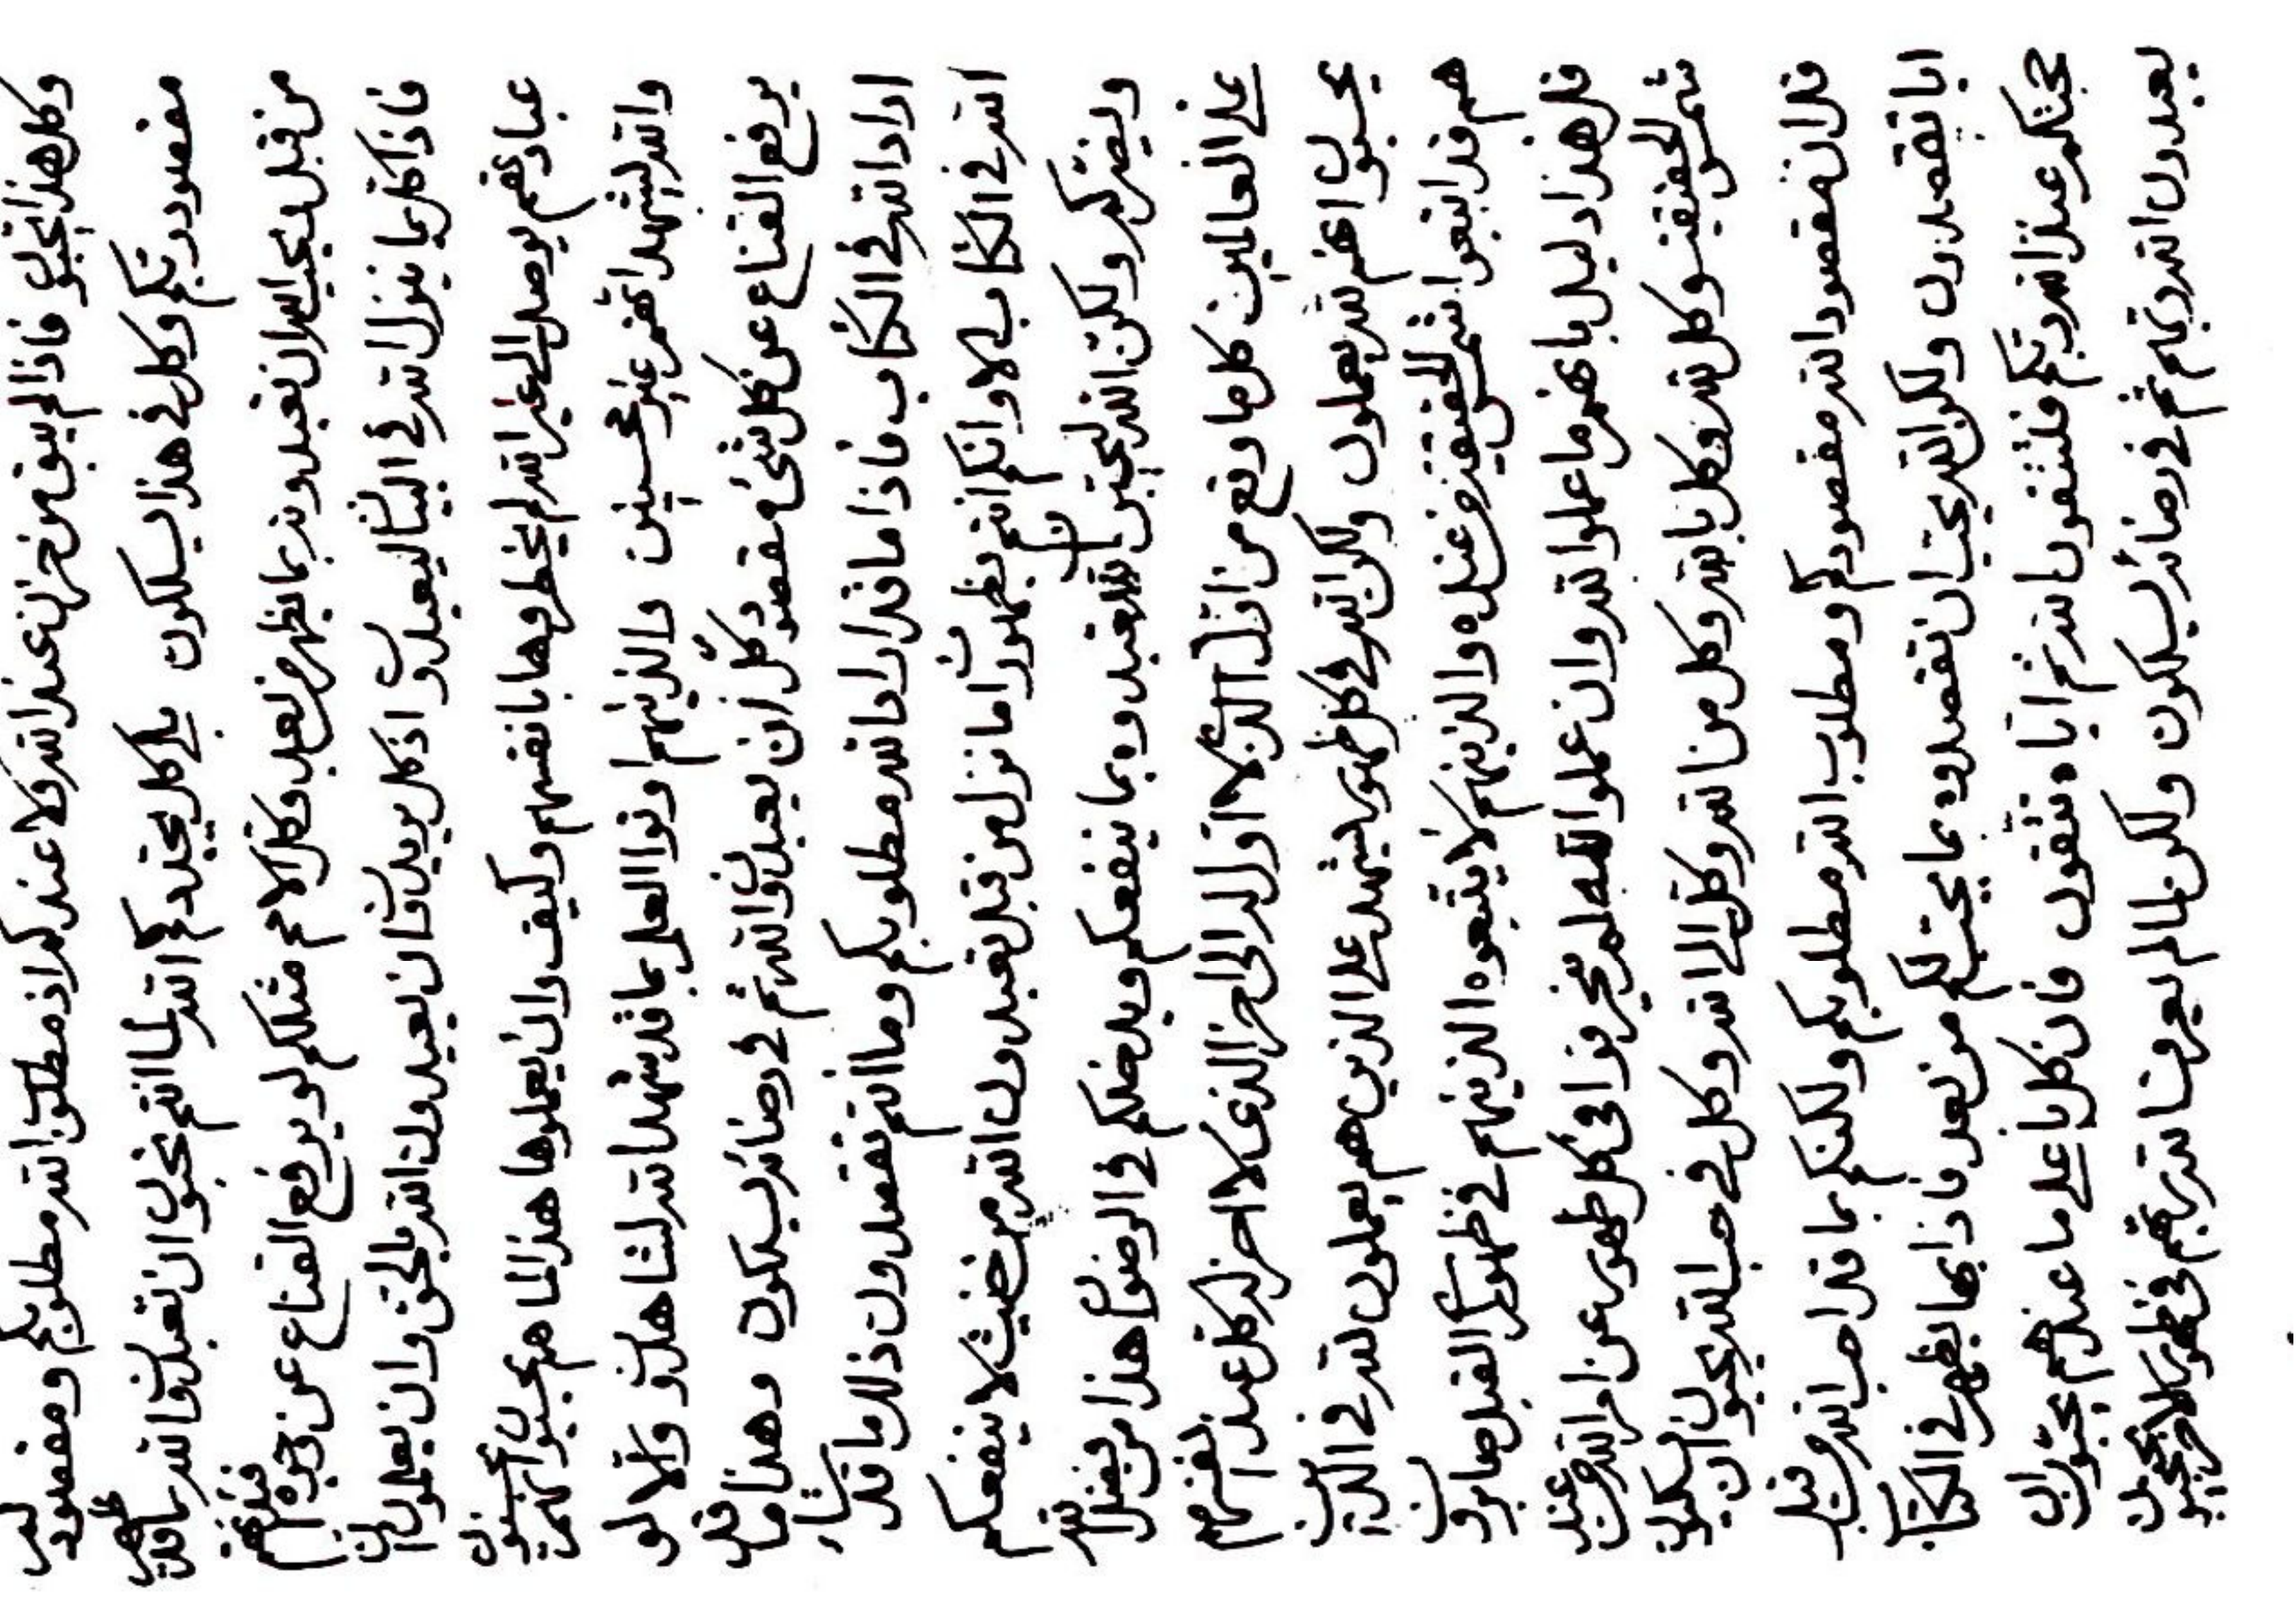 وكل هذا تحبون فاذا لم يبق من حزن عند الله ولا عندكم اذ مطلوب الله مطلوبكم ومقصود الله
مقصود ربكم وكل في هذا يسلكون بلى كل الله لما انتم تحبون ان تعبدون الله بما قد يظهر
من قبل ويحب الله ان تعبدونه بما يظهر من بعد وكل الامم مثلكم لو يرفع القناع عن وجوههم
فاذا كل بما ينزل الله في البيان ليعبدون اذ كل يريدون ان يعبدون الله بالحق وان يعملون
عباد وهم يوصل الى غير الله لم يخطروها بانفسهم وكيف وان يعملوها هذا لما هم يحسبون انهم يحسنون
والله ليشهد انهم غير محسنين والذينهم اوتوا العلم بما قد شهد الله لشاهدون والا لو
يرفع القناع عن كل شئ مقصود كل ان يعبدون الله ثم في رضائه يسلكون وهذا ما قد
اراد الله في الكتاب فاذا ما قد اراد الله مطلوبكم وما انتم تقصدون ذلك ما قد شاء
الله في الكتاب الا وانكم انتم بظهورات ما نزل من قبل تعبدون الله من حيث لا ينفعكم
ويضركم ولكن الله ليحبن ان تعبدوه بما ينفعكم ويدخلكم في الرضوان هذا من فضل الله
على العالمين كل ما وقع من اول الذي لا اول له الى اخر الذي لا اخر له كل عند انفسهم
يحسبون انهم لله يعملون ولكن الله في كل ظهور يشهد على الذين هم يعملون لله في الدين
هم قد اتبعوا شمس الحقيقة من عنده والذينهم لا يتبعوه الذينهم في ظهور القبل صابرون
قل هذا دليل بانهم ما عملوا لله وان عملوا لله لم في كل ظهور عن امر الله من عند
شمس الحقيقة وكل لله وكل بالله وكل من الله وكل الى الله وكل في حب الله يحبون ان يسلكون
قل ان مقصود الله مقصودكم ومطلوب الله مطلوبكم ولكنكم بما قد احب الله من قبل
اياه تقصدون ولكن الله يحب ان تقصدوه بما يحب لكم من بعد فاذا بما يظهر في الكتاب
حجتكم عند الله ربكم فلتتقون الله ثم اياه تتقون فان كل على ما عندهم يحبون ان
يعبدون الله ربهم ثم في رضائه يسلكون ولكن لما لم يعرف الله ربهم في ظهور الاخر يحتجبون